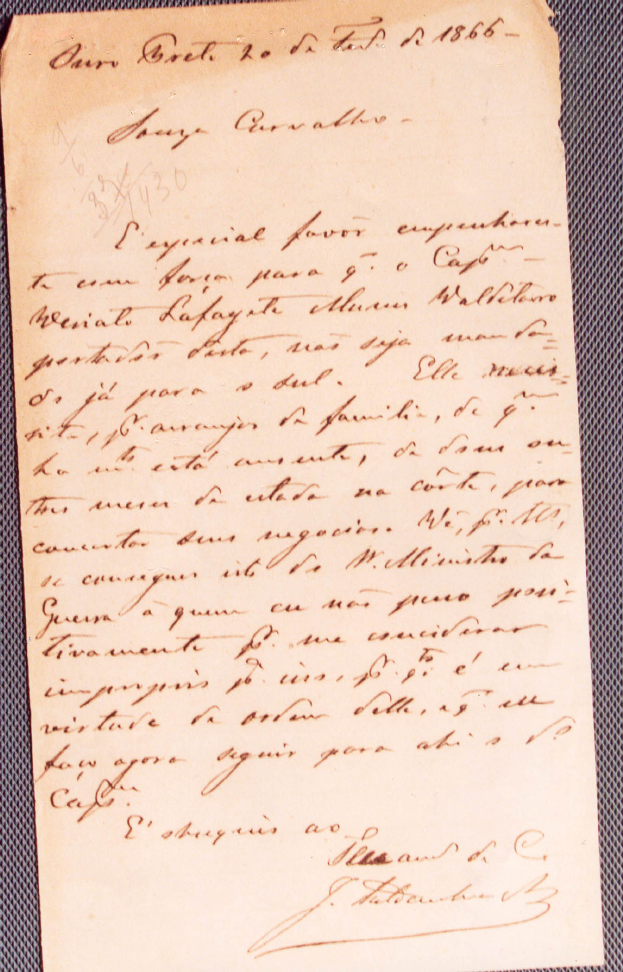 Ouro Preto 20 de Fev. de 1866 -
Souza Carvalho -
É especial favôr empenhares-
te com força para q. o Cap.m
Lafayete Muniz
portador desta, não seja manda-
do já para o sul. Elle neces-
sita, p.r arranjos de familia, de q.m
ha m.to está ausente, de dous ou
tres mezes de estada na côrte, para
concertar seus negocios. Vê, p.r
se consegues isto do Ministro da
Guerra á quem eu não peço posi-
tivamente p.r me considerar
improprio p.a isso, p.r q.to é em
virtude de ordem delle, q.
faço agora seguir para ahi o d.o
Cap.m
É obsequio ao
Am.o de C.
J. Saldanha